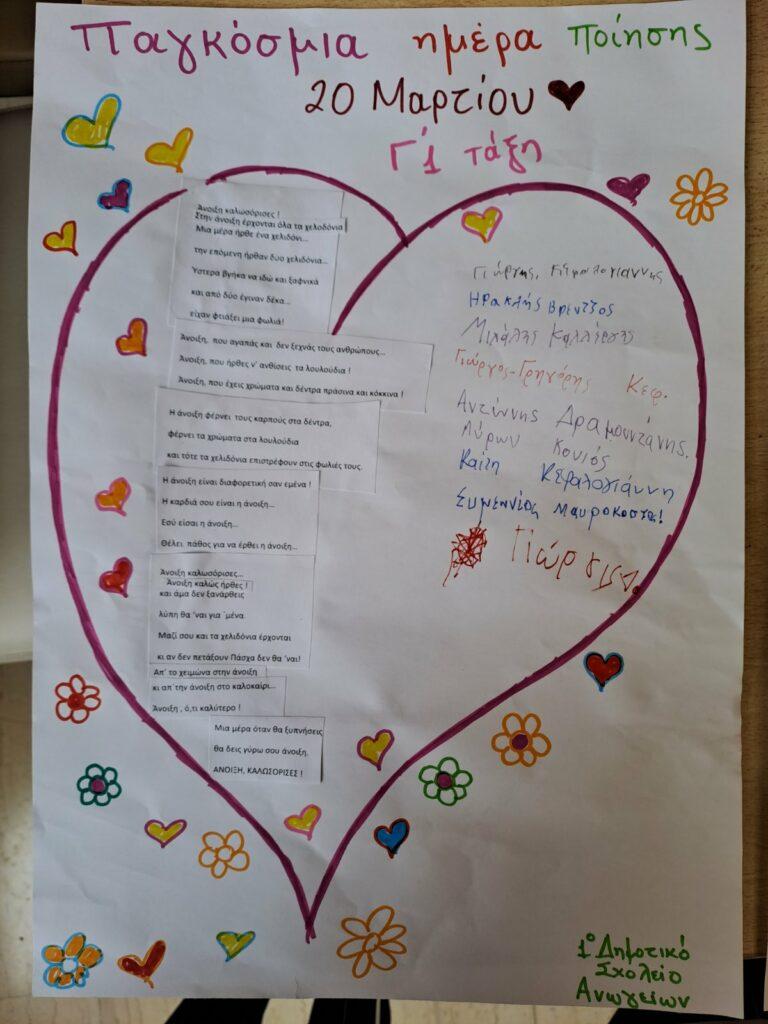 Παγκόσμια ημέρα ποίησης
20 Μαρτίου
Γ'1 τάξη
Άνοιξη καλωσόρισες !
Στην άνοιξη έρχονται όλα τα χελοδόνια
Μια μέρα ήρθε ένα χελιδόνι...
την επόμενη ήρθαν δύο χελιδόνια...
Ύστερα βγήκα να ιδώ και ξαφνικά
και από δύο έγιναν δέκα...
είχαν φτιάξει μια φωλιά!
Άνοιξη, που αγαπάς και δεν ξεχνάς τους ανθρώπους...
Άνοιξη, που ήρθες ν' ανθίσεις τα λουλούδια !
Άνοιξη, που έχεις χρώματα και δέντρα πράσινα και κόκκινα !
Η άνοιξη φέρνει τους καρπούς στα δέντρα,
φέρνει τα χρώματα στα λουλούδια
και τότε τα χελιδόνια επιστρέφουν στις φωλιές τους.
Η άνοιξη είναι διαφορετική σαν εμένα !
Η καρδιά σου είναι η άνοιξη...
Εσύ είσαι η άνοιξη...
Θέλει πάθος για να έρθει η άνοιξη...
Άνοιξη καλωσόρισες...
Άνοιξη καλώς ήρθες !
και άμα δεν ξανάρθεις
λύπη θα 'ναι για ΄μένα
Μαζί σου και τα χελιδόνια έρχονται
κι αν δεν πετάξουν Πάσχα δεν θα 'ναι!
Απ' το χειμώνα στην άνοιξη
κι απ΄την άνοιξη στο καλοκαίρι...
Άνοιξη , ό,τι καλύτερο !
Μια μέρα όταν θα ξυπνήσεις
θα δεις γύρω σου άνοιξη.
ΑΝΟΙΞΗ, ΚΑΛΩΣΟΡΙΣΕΣ !
Γιώργης, Κεφαλογιαννης
Ηρακλής Βρέντζος
Μιχάλης Καλλέργης
Γιώργος-Γρηγόρης Κεφ.
Αντώνης Δραμουντάνης.
Μύρων Κονιός
Καίτη Κεφαλογιάννη
Ευμένιος Μαυροκωστας!
Γιώργης.
1ο Δημοτικό
Σχολείο
Ανωγείων